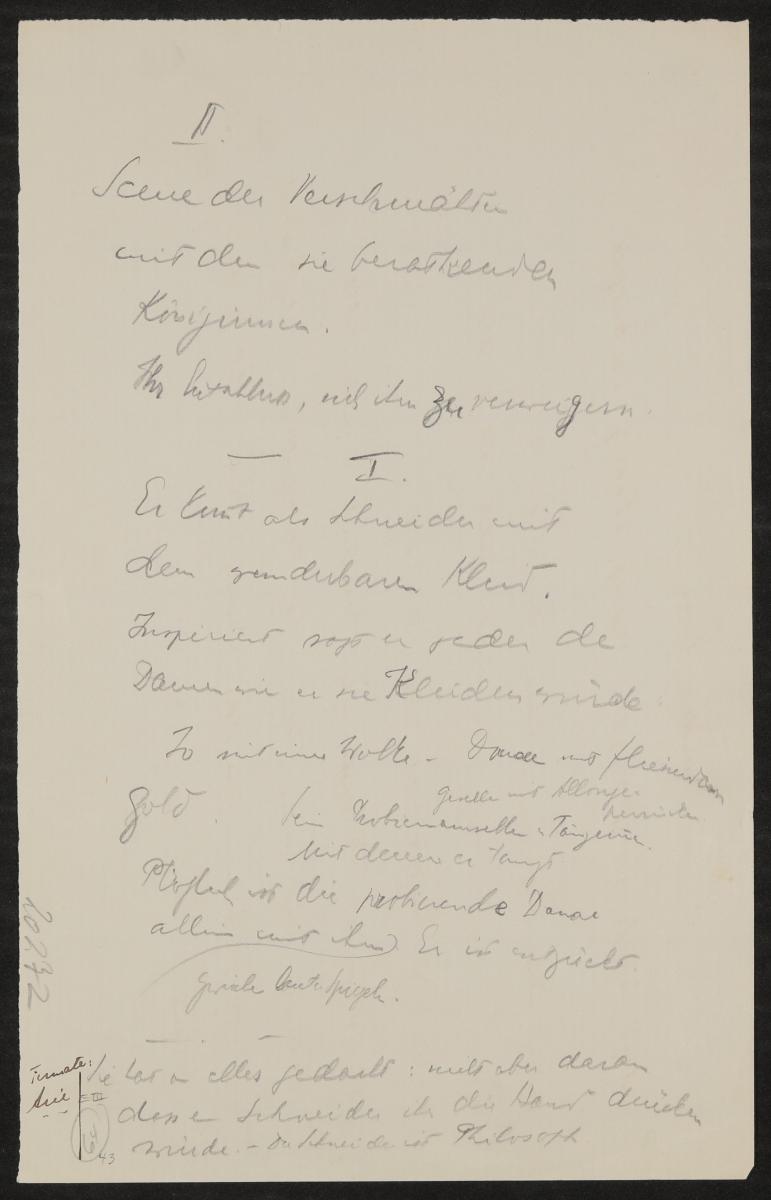 II.
Scene der Verschmähten
mit den sie beratenden
Königinnen.
Ihr Entschluss, sich ihm zu verweigern.
I.
Er kommt als Schneider mit
dem wunderbaren Kleid.
Inspiriert sagt er jeder der
Damen wie er sie kleiden würde.
Io mit einer Wolke – Danae mit fliessendem
Gold.
Geselle mit Allonge-
perrücke
sein Probiermamsellen u. Tänzerin.
Mit denen er tanzt
Plötzlich ist die probierende Danae
allein mit ihm. Er ist entzückt.
Sie hat an alles gedacht: nicht aber daran
dass ein Schneider ihr die Hand drücken
würde. – Der Schneider ist Philosoph
Ternate:
Arie
III
43
20272